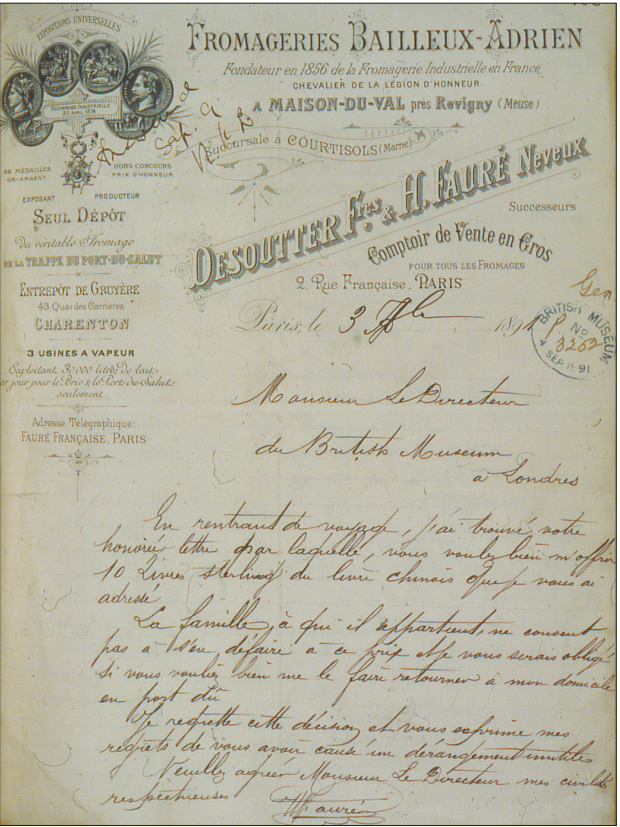 EXPOSITIONS UNIVERSELLES
RÉCOMPENSE INDUSTRIELLE
30 AVRIL 1874
66 MÉDAILLES
OR-ARGENT
HORS CONCOURS
PRIX D'HONNEUR
EXPOSANT PRODUCTEUR
SEUL DÉPÔT
Du véritable Fromage
DE LA TRAPPE DU PORT-DU-SALUT
ENTREPÔT DE GRUYÈRE
43 Quai des Carrières
CHARENTON
3 USINES A VAPEUR
Exploitant 30 000 litres de lait
par jour pour le Brie & le Port-du-Salut
seulement
Adresse Télégraphique:
FAURÉ FRANÇAISE, PARIS
FROMAGERIES BAILLEUX-ADRIEN
Fondateur en 1856 de la Fromagerie Industrielle en France
CHEVALIER DE LA LÉGION D'HONNEUR
A MAISON-DU-VAL près Revigny (Meuse)
Succursale à COURTISOLS (Marne)
DESOUTTER Fres & H. FAURÉ Neveux
Successeurs
Comptoir de Vente en Gros
POUR TOUS LES FROMAGES
2, Rue Française, PARIS
Gen.
Paris, le 3 7bre 1891
BRITISH MUSEUM
P.
No
3252
4 SEP 91
Monsieur Le Directeur
du British Museum
à Londres
En rentrant de voyage, j'ai trouvé votre
honorée lettre par laquelle, vous voulez bien m'offrir
10 Livres sterling du livre chinois que je vous ai
adressé
La famille, à qui il appartient, ne consent
pas à s'en défaire à ce prix et je vous serais obligé
si vous vouliez bien me le faire retourner à mon domicile
en port dû
Je regrette cette décision et vous exprime mes
regrets de vous avoir causé un dérangement inutile
Veuillez agréer Monsieur Le Directeur mes civilités
respectueuses
H. Fauré